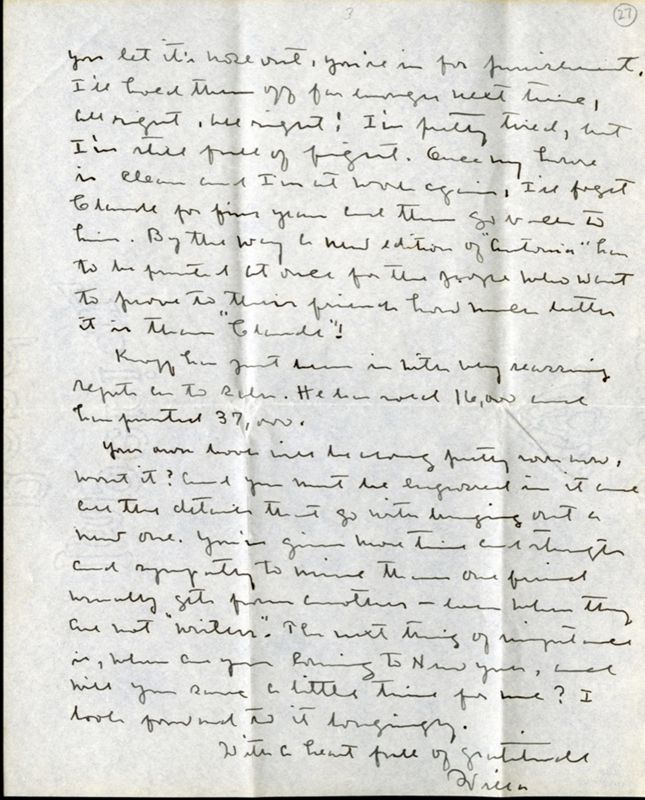 3
27
you let it's nose out, you're in for punishment.
I'll hold them off far enough next time,
all right, all right! I'm pretty tired, but
I'm still full of fight. Once my house
is clean and I'm at work again, I'll forget
Claude for five years and then go back to
him. By the way a new edition of "Antonia" has
to be printed at once for the people who want
to prove to their friends how much better
it is than "Claude"!
Knopf has just been in with very reassuring
reports as to sales. He has sold 16,000 and
has printed 37,000.
Your own book will be along pretty soon now,
wont it? And you must be engrossed in it and
all the details that go with bringing out a
new one. You've given more time and strength
and sympathy to mine than one friend
usually gets from another — even when they
are not "writers". The next thing of importance
is, when are you coming to New York, and
will you save a little time for me? I
look forward to it longingly.
With a heart full of gratitude
Willa